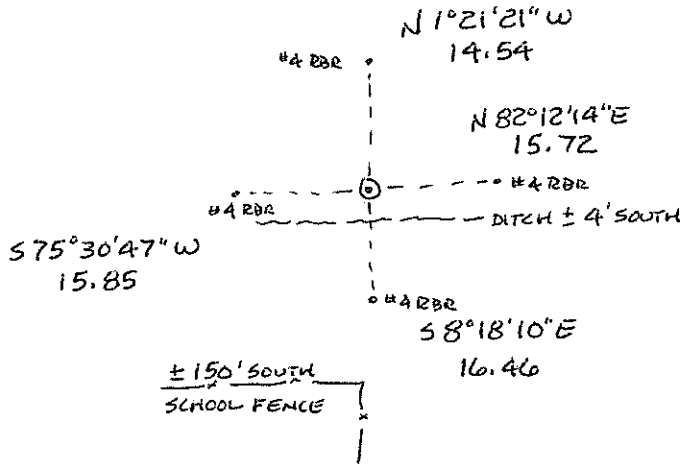 N 1°21'21" W
14.54
#4 RBR
N 82°12'14" E
15.72
#4 RBR
#4 RBR
DITCH ± 4' SOUTH
S 75°30'47" W
15.85
#4 RBR
S 8°18'10" E
16.46
± 150' SOUTH
SCHOOL FENCE